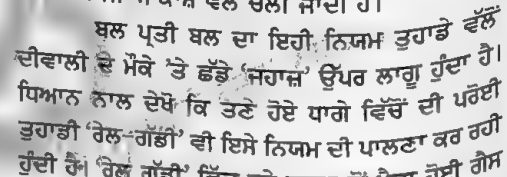 ਵਲ ਚਲੀ ਜਾਂਦੀ ਹੈ।
ਬਲ ਪ੍ਰਤੀ ਬਲ ਦਾ ਇਹੀ ਨਿਯਮ ਤੁਹਾਡੇ ਵੱਲੋਂ
ਦੀਵਾਲੀ ਦੇ ਮੌਕੇ 'ਤੇ ਛੱਡੇ 'ਜਹਾਜ਼' ਉੱਪਰ ਲਾਗੂ ਹੁੰਦਾ ਹੈ।
ਧਿਆਨ ਨਾਲ ਦੇਖੋ ਕਿ ਤਣੇ ਹੋਏ ਧਾਗੇ ਵਿੱਚੋਂ ਦੀ ਪਰੋਈ
ਤੁਹਾਡੀ 'ਰੇਲ-ਗੱਡੀ' ਵੀ ਇਸੇ ਨਿਯਮ ਦੀ ਪਾਲਣਾ ਕਰ ਰਹੀ
ਹੁੰਦੀ ਹੈ। 'ਰੇਲ ਗੱਡੀ' ਹੋਈ ਗੈਸ